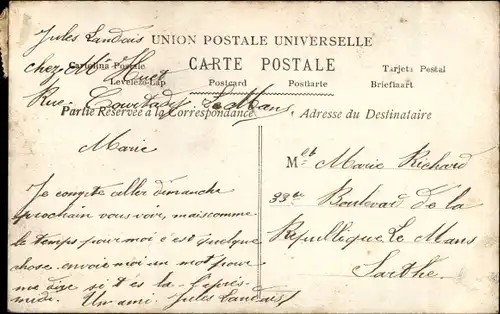 Jules Landais
UNION POSTALE UNIVERSELLE
chez Mr Huet
Cartolina Postale
CARTE POSTALE
Tarjeta Postal
Levelező-Lap
Postcard
Postkarte
Briefkaart
Rue Courtady. Le Mans
Partie Réservée à la Correspondance
Adresse du Destinataire
Marie
Je compte aller dimanche
prochain vous voir, mais comme
le temps pour moi c'est quelque
chose. envoie moi un mot pour
me dire si t'es là l'après
midi. Un ami Jules Landais
Mlle Marie Richard
33 Boulevard de la
République Le Mans
Sarthe.